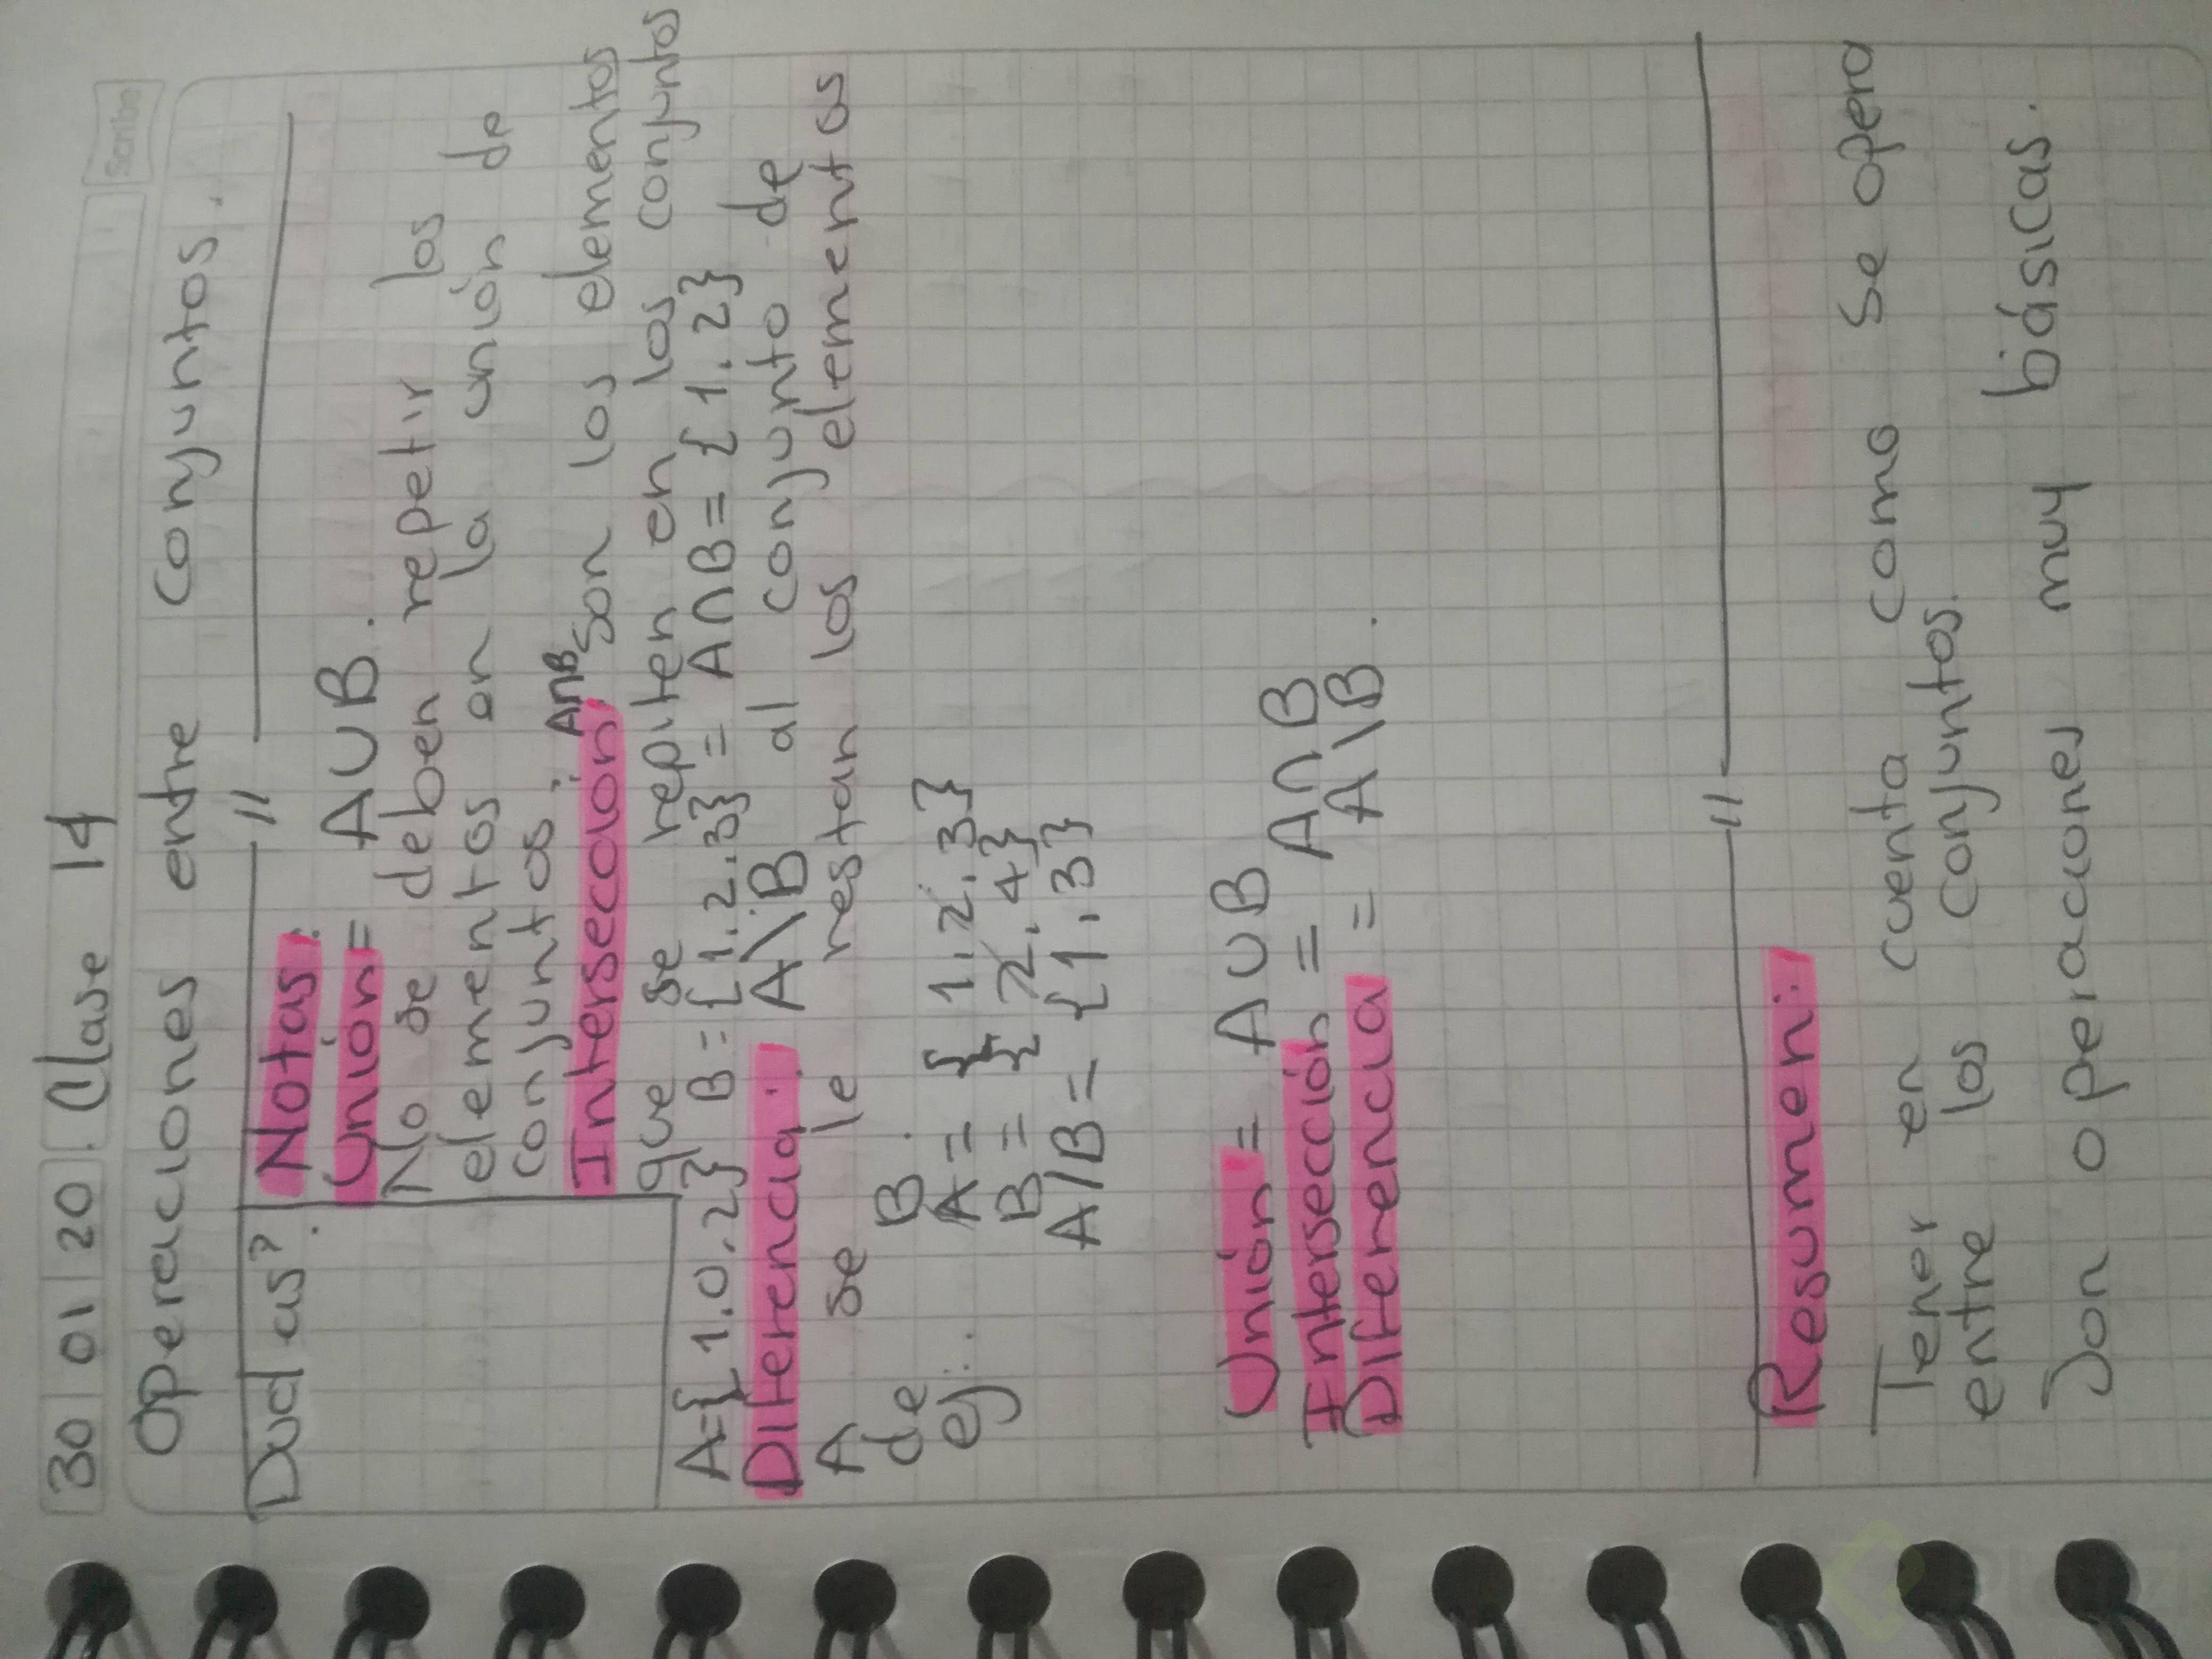 Scribe
30 01 20. Clase 14
Operaciones entre conjuntos.
Dudas?
Notas:
Unión= A∪B.
No se deben repetir los
elementos en la unión de
conjuntos.
Intersección: A∩B son los elementos
que se repiten en los conjuntos
A={1.0.2} B={1.2.3} = A∩B={1.2}
Diferencia: A\B al conjunto de
A se le restan los elementos
de B.
ej: A={1.2.3}
B={2.4}
A/B={1.3}
Unión= A∪B
Intersección= A∩B
Diferencia = A\B.
Resumen:
Tener en cuenta como se opera
entre los conjuntos.
Son operaciones muy básicas.